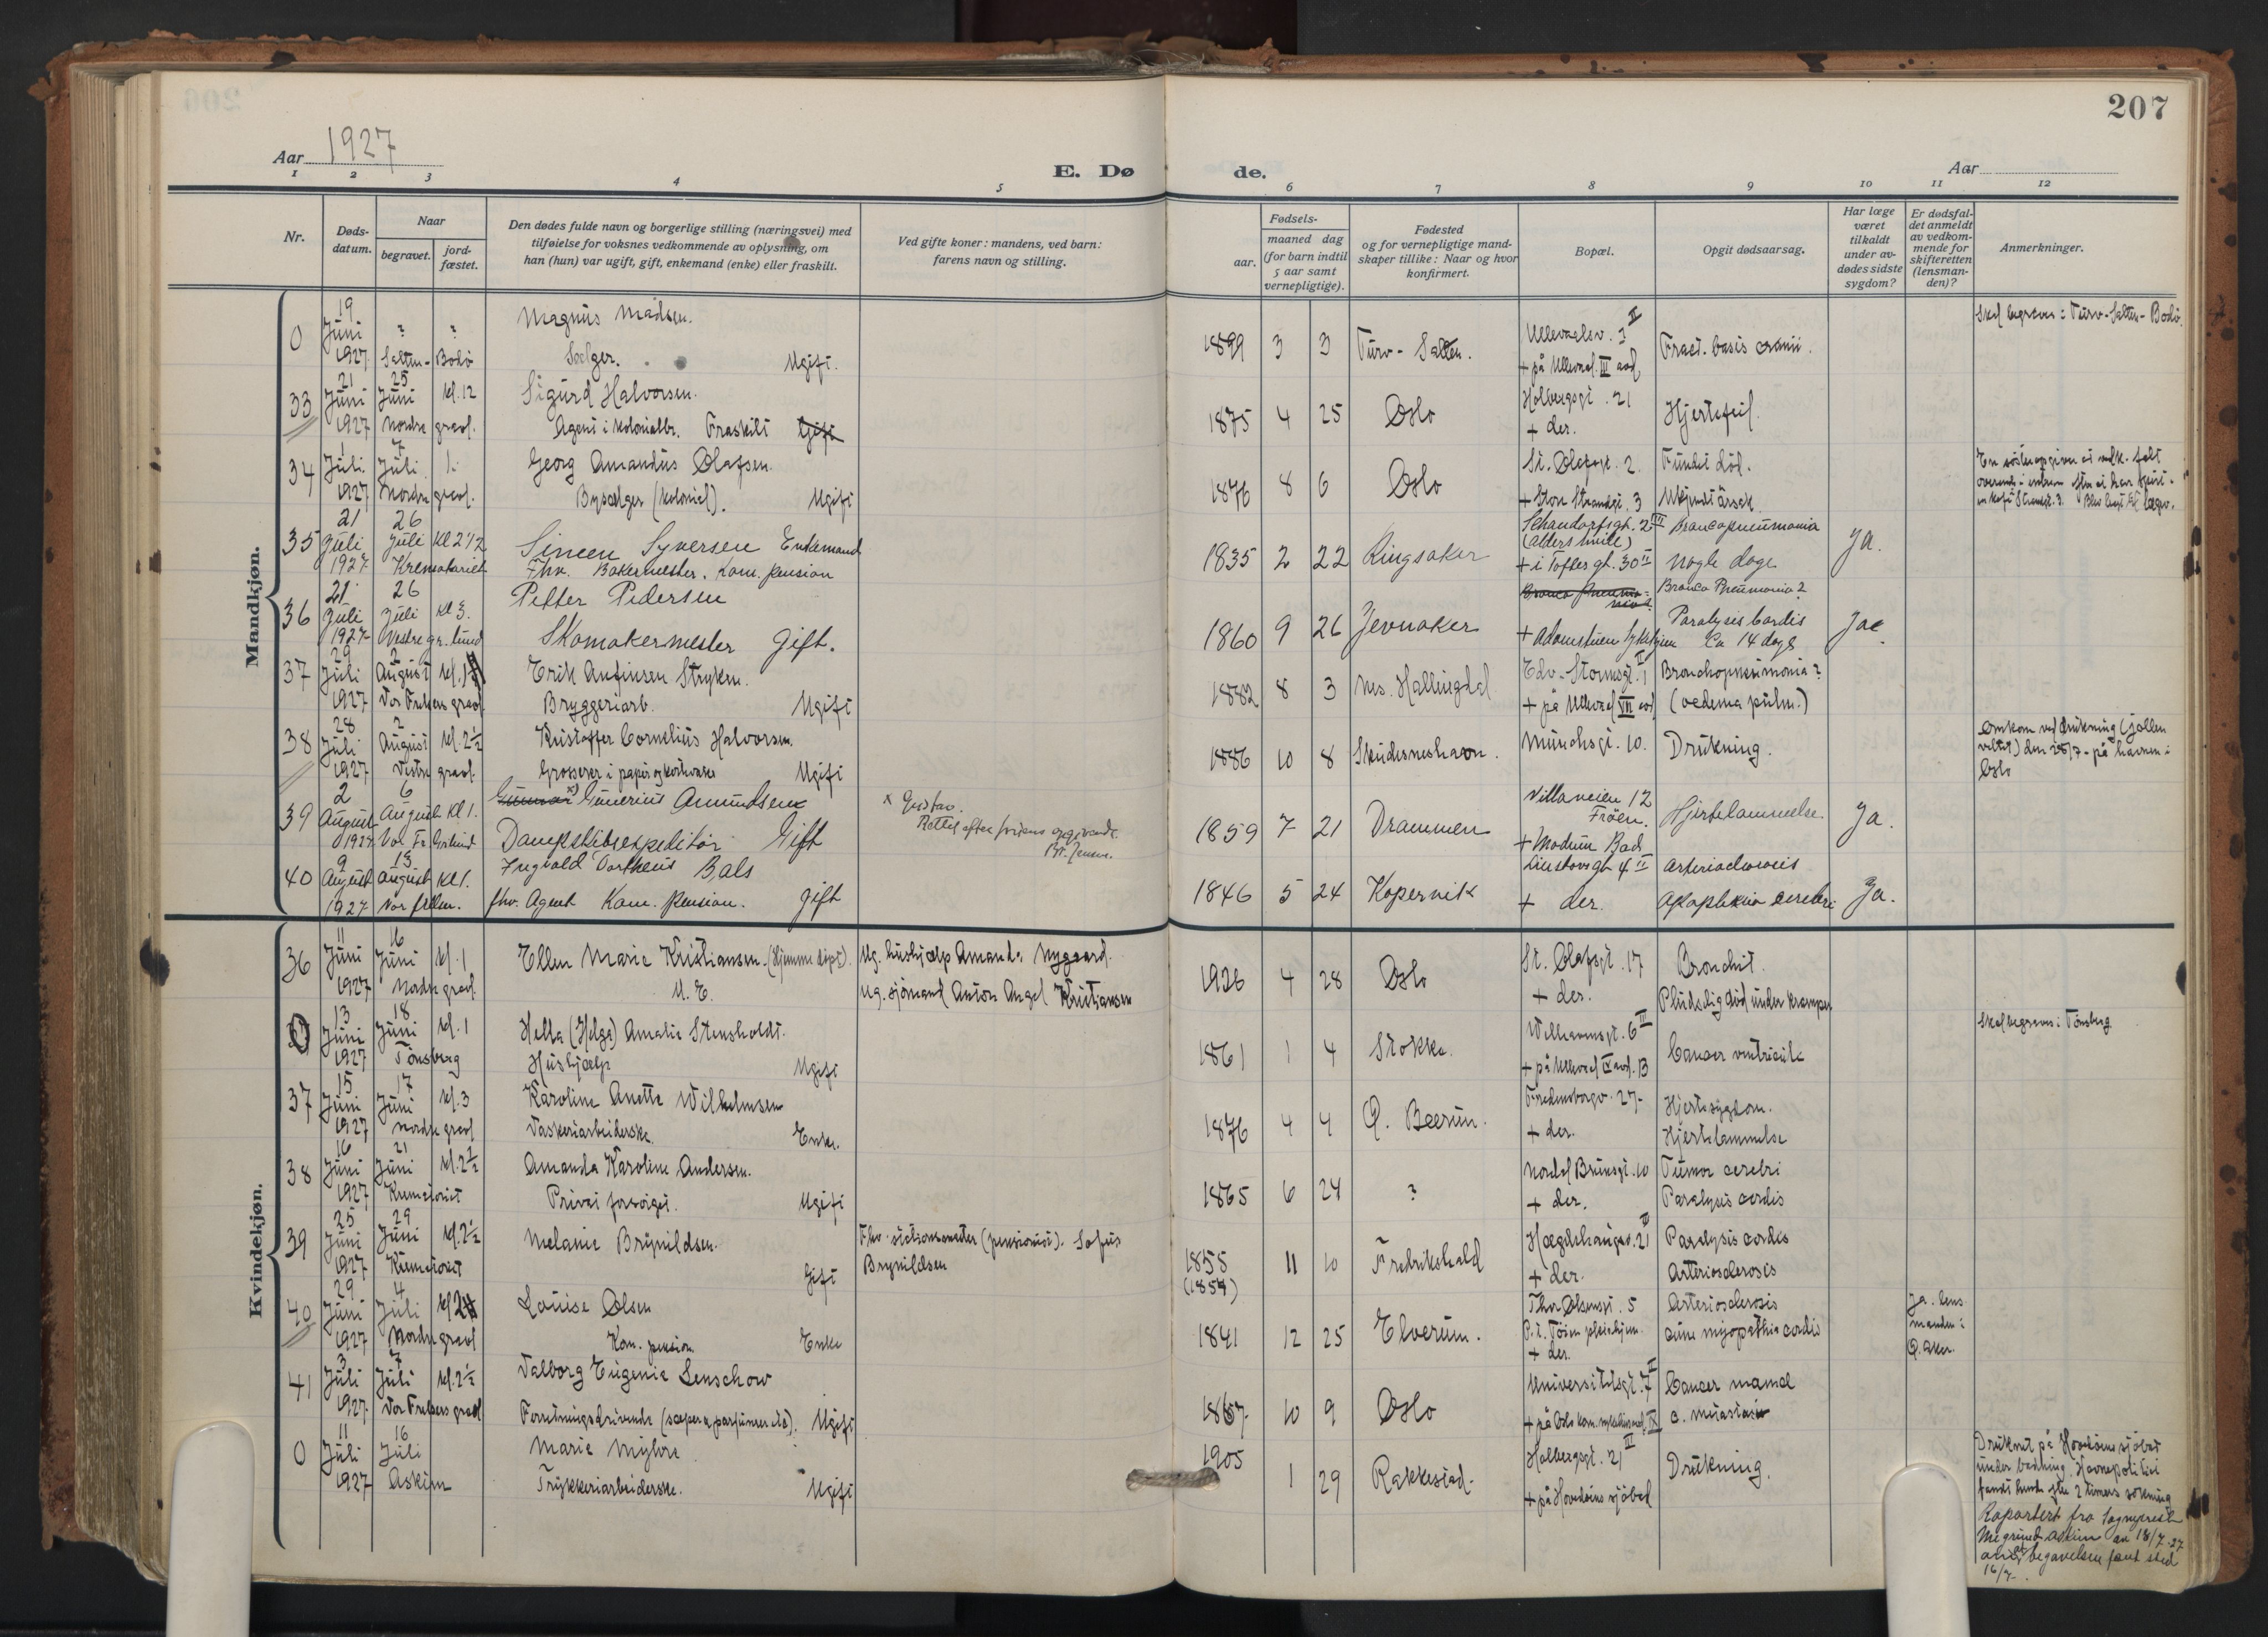 207
Aar 1927
E. Dø
de.
Aar
1 2 3 4 5 6 7 8 9 10 11 12
Nr.
Døds-
datum.
Naar
begravet.
jord-
fæstet.
Den dødes fulde navn og borgerlige stilling (næringsvei) med
tilføielse for voksnes vedkommende av oplysning, om
han (hun) var ugift, gift, enkemand (enke) eller fraskilt.
Ved gifte koner: mandens, ved barn:
farens navn og stilling.
Fødsels-
aar.
maaned dag
(for barn indtil
5 aar samt
vernepligtige).
Fødested
og for vernepligtige mand-
skaper tillike: Naar og hvor
konfirmert.
Bopæl.
Opgit dødsaarsag.
Har læge
været
tilkaldt
under av-
dødes sidste
sygdom?
Er dødsfal-
det anmeldt
av vedkom-
mende for
skifteretten
(lensman-
den)?
Anmerkninger.
Mandkjøn.
0 19 Juni 1927 ? ? Salten-Bodø
Magnus Madsen.
Sælger. Ugift.
1899 3 3 - Salten.
Ullevaalsv. 3 II
+ på Ullevaal III avd
Fract. basis cranii.
Skal begraves i - Salten - Bodø.
33 21 Juni 1927 25 Juni kl. 12 Nordre gravl.
Sigurd Halvorsen.
Agent i kolonialbr. Fraskilt Gift
1875 4 25 Oslo
Holbergsgt. 21
+ der.
Hjertefeil.
34 1 Juli 1927 7 Juli 1. Nordre gravl.
Georg Amandus Olafsen.
Bysælger (kolonial). Ugift
1876 8 6 Oslo
St. Olafsgt. 2.
+ Store Strandgt. 3
Fundet død.
Ukjendt årsak
35 21 Juli 1927 26 Juli kl 2 1/2 Krematoriet
Simeon Syversen Enkemand
Fhv. Bakermester. Kom. pension
1835 2 22 Ringsaker
Schandorfsgt. 2 III
(alders hvile)
+ i Toftes gt. 30 II
Broncopneumonia
nogle dage
Ja.
36 21 Juli 1927 26 Juli kl 3. Vestre gr. lund
Petter Pedersen
Skomakermester Gift.
1860 9 26 Jevnaker
+ Adamstuen Sykehjem
Bronco Pneumonia?
Paralysis Cordis
Ca 14 dage
Ja
37 29 Juli 1927 2 August kl. 1 Vor Frelsers gravl
Erik Anfinsen Stryken.
Bryggeriarb. Ugift
1882 8 3 Nes. Hallingdal
Edv. Stormsgt. 1 II
+ på Ullevaal VII avd
Bronchopneumonia?
(oedema pulm.)
38 28 Juli 1927 2 August kl. 2 1/2 Vestre gravl.
Kristoffer Cornelius Halvorsen.
Grosserer i papir og kortevarer Ugift
1886 10 8 Skudesneshavn.
Munchsgt. 10.
Drukning.
Omkom ved drukning (jollen
veltet) den 28/7 - på havnen i
Oslo
39 2 August 1927 6 August Kl 1. Vor Fr. Grlund
Gunnar x) Gunerius Amundsen
Dampskibsexpeditør Gift
x Gustav.
Rettet efter prestens opgivende.
1859 7 21 Drammen
Villaveien 12
Frøen.
+ Modum Bad
Hjertelammelse
Ja.
40 9 August 1927 13 August Kl 1. Vor frelser.
Ingvald Dortheus Bals
fhv. Agent Kom. Pension. gift
1846 5 24 Kopervik
+ der.
Arteriosclerosis
Apoplexia cerebri
Ja.
Kvindekjøn.
36 11 Juni 1927 16 Juni kl. 1 Nordre gravl.
Ellen Marie Kristiansen. (Hjemme døpt).
U. E.
Ug. hushjælp Amanda Nygaard.
Ug. sjømand Anton Angel Kristiansen
1926 4 28 Oslo
St. Olafsgt. 17
+ der.
Bronchit.
Pludselig død under kramper
0 13 Juni 1927 18 Juni kl. 1 Tønsberg
Hella (Helga) Amalie Stensholdt.
Hushjælp Ugift
1861 1 4 Stokke.
Welhavensgt. 6 III
+ på Ullevaal IX avd. B
Cancer ventriculi
Skal begraves i Tønsberg
37 15 Juni 1927 17 Juni kl. 3 Nordre gravl
Karoline Anette Wilhelmsen
Vaskeriarbeiderske. Enke.
1876 4 4 Ø. Bærum.
Fredensborgv. 27
+ der.
Hjertesygdom.
Hjertelammelse
38 16 Juni 1927 21 Juni kl. 2 1/2 Krematoriet
Amanda Karoline Andersen.
Privat forsørget. Ugift
1865 6 24 ?
Nordal Brunsgt. 10
+ der.
Tumor cerebri
Paralysis cordis
39 25 Juni 1927 29 Juni kl. 2 1/2 Krematoriet
Melanie Brynildsen. Gift
Fhv. stationsmester (pensionist). Sofus
Brynildsen
1855
(1854) 11 10 Fredrikshald
Hægdehaugsv. 21 III
+ der.
Paralysis cordis
Arteriosclerosis
40 29 Juni 1927 4 Juli kl 2 Nordre gravl
Louise Olsen
Kom. pension Enke
1841 12 25 Elverum.
Thor Olsensgt. 5
P. t. Tøien pleiehjem
+ der.
Arteriosclerosis
cum myopathia cordis
Ja. lens
manden i
Ø. Aker.
41 3 Juli 1927 7 Juli kl. 2 1/2 Vor Frelsers gravl
Valborg Eugenie Lenschow
Forretningsdrivende (sæper, parfumer etc). Ugift
1867 10 9 Oslo
Universitetsgt. 7 II
Cancer mamae
0 11 Juli 1927 16 Juli Askim
Marie Myhre
Trykkeriarbeiderske. Ugift
1905 1 29 Rakkestad
Holbergsgt. 21 II
+ på Hovedøens sjøbad
Drukning.
Druknet på Hovedøens sjøbad
under badning. Havnepolitiet
fandt hende efter 2 timers søkning
Rapportert fra Sogneprest
Askim av 18/7-27
at begravelsen fant sted
16/7.